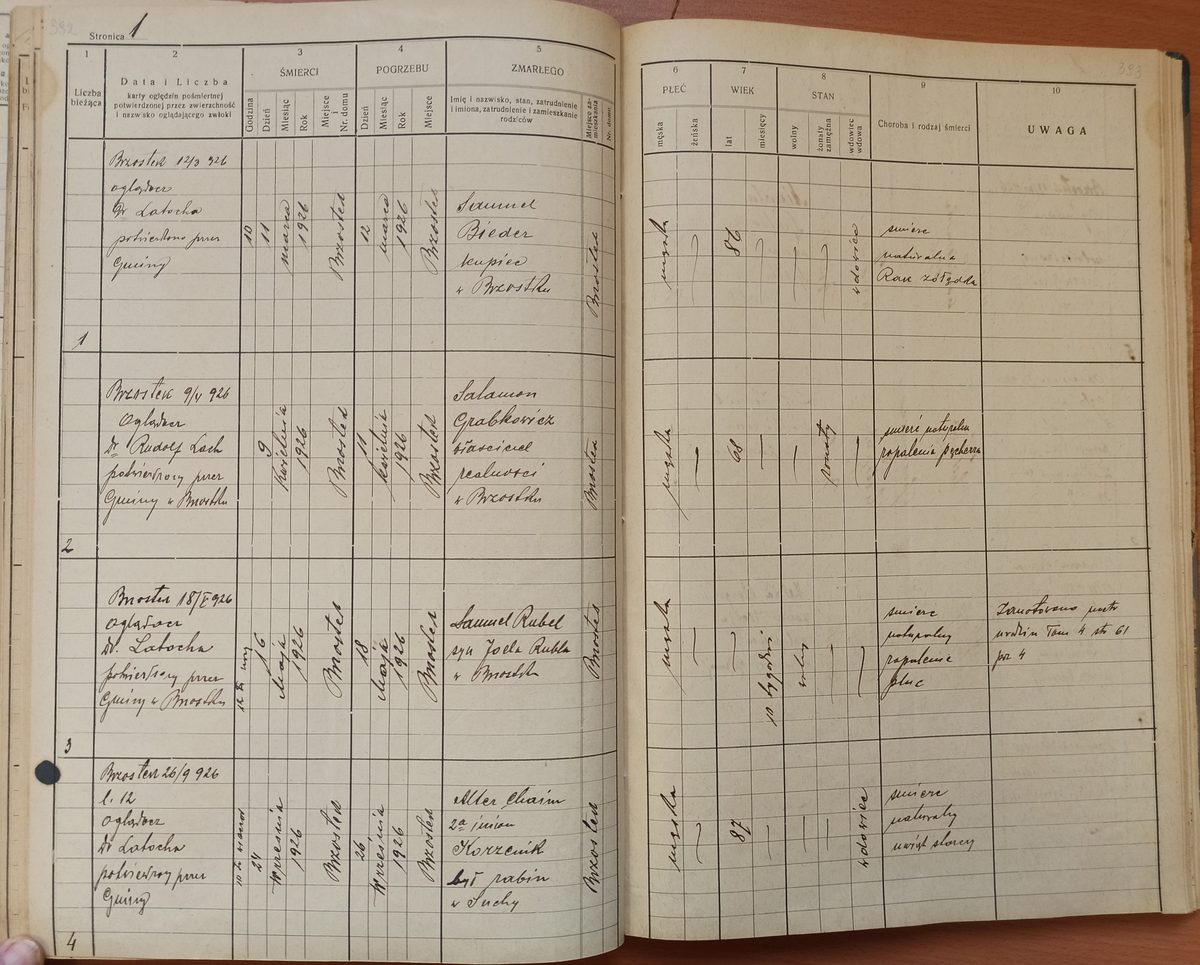 392
Stronica 1
1
2
3
4
5
Liczba bieżąca
Data i Liczba
karty oględzin pośmiertnej
potwierdzonej przez zwierzchność
i nazwisko oglądającego zwłoki
ŚMIERCI
Godzina
Dzień
Miesiąc
Rok
Miejsce i
Nr. domu
POGRZEBU
Dzień
Miesiąc
Rok
Miejsce
ZMARŁEGO
Imię i nazwisko, stan, zatrudnienie
i imiona, zatrudnienie i zamieszkanie
rodziców
Miejsce za-
mieszkania
Nr. domu
393
6
7
8
9
10
PŁEĆ
męska
żeńska
WIEK
lat
miesięcy
STAN
wolny
żonaty
zamężna
wdowiec
wdowa
Choroba i rodzaj śmierci
UWAGA
1
Brzostek 12/3 926
oglądacz
Dr Latocha
potwierdzono przez
Gminy
10
11
marca
1926
Brzostek
12
marca
1926
Brzostek
Samuel
Bieder
kupiec
w Brzostku
Brzostek
męska
86
wdowiec
smierc
naturalna
Rak żółądka
2
Brzostek 9/4 926
Oglądacz
Dr Rudolf Lach
potwierdzony przez
Gminy w Brzostku
9
Kwietnia
1926
Brzostek
11
kwietnia
1926
Brzostek
Salamon
Grabkowicz
właściciel
realności
w Brzostku
Brzostek
męska
68
żonaty
smierć naturalna
zapalenia pęcherza
3
Brzostek 18/5 926
Oglądacz
Dr. Latocha
potwierdzony przez
Gminy w Brzostku
16
Maja
1926
Brzostek
18
Maja
1926
Brzostek
Samuel Rubel
syn Joela Rubla
w Brzostku
Brzostek
męska
10 tygodni
wolny
smierc
naturalny
zapalenie
płuc
Zanotowano
urodzin Tom 4 str 61
poz 4
4
Brzostek 26/9 926
l. 12
Oglądacz
Dr Latocha
potwierdzony przez
Gminy
24
Wrześnía
1926
Brzostek
26
Wrześnía
1926
Brzostek
Alter Chaim
2a imion
Korzenik
był rabin
w Suchy
Brzostek
męska
87
wdowiec
smierc
naturalny
uwiąt starczy